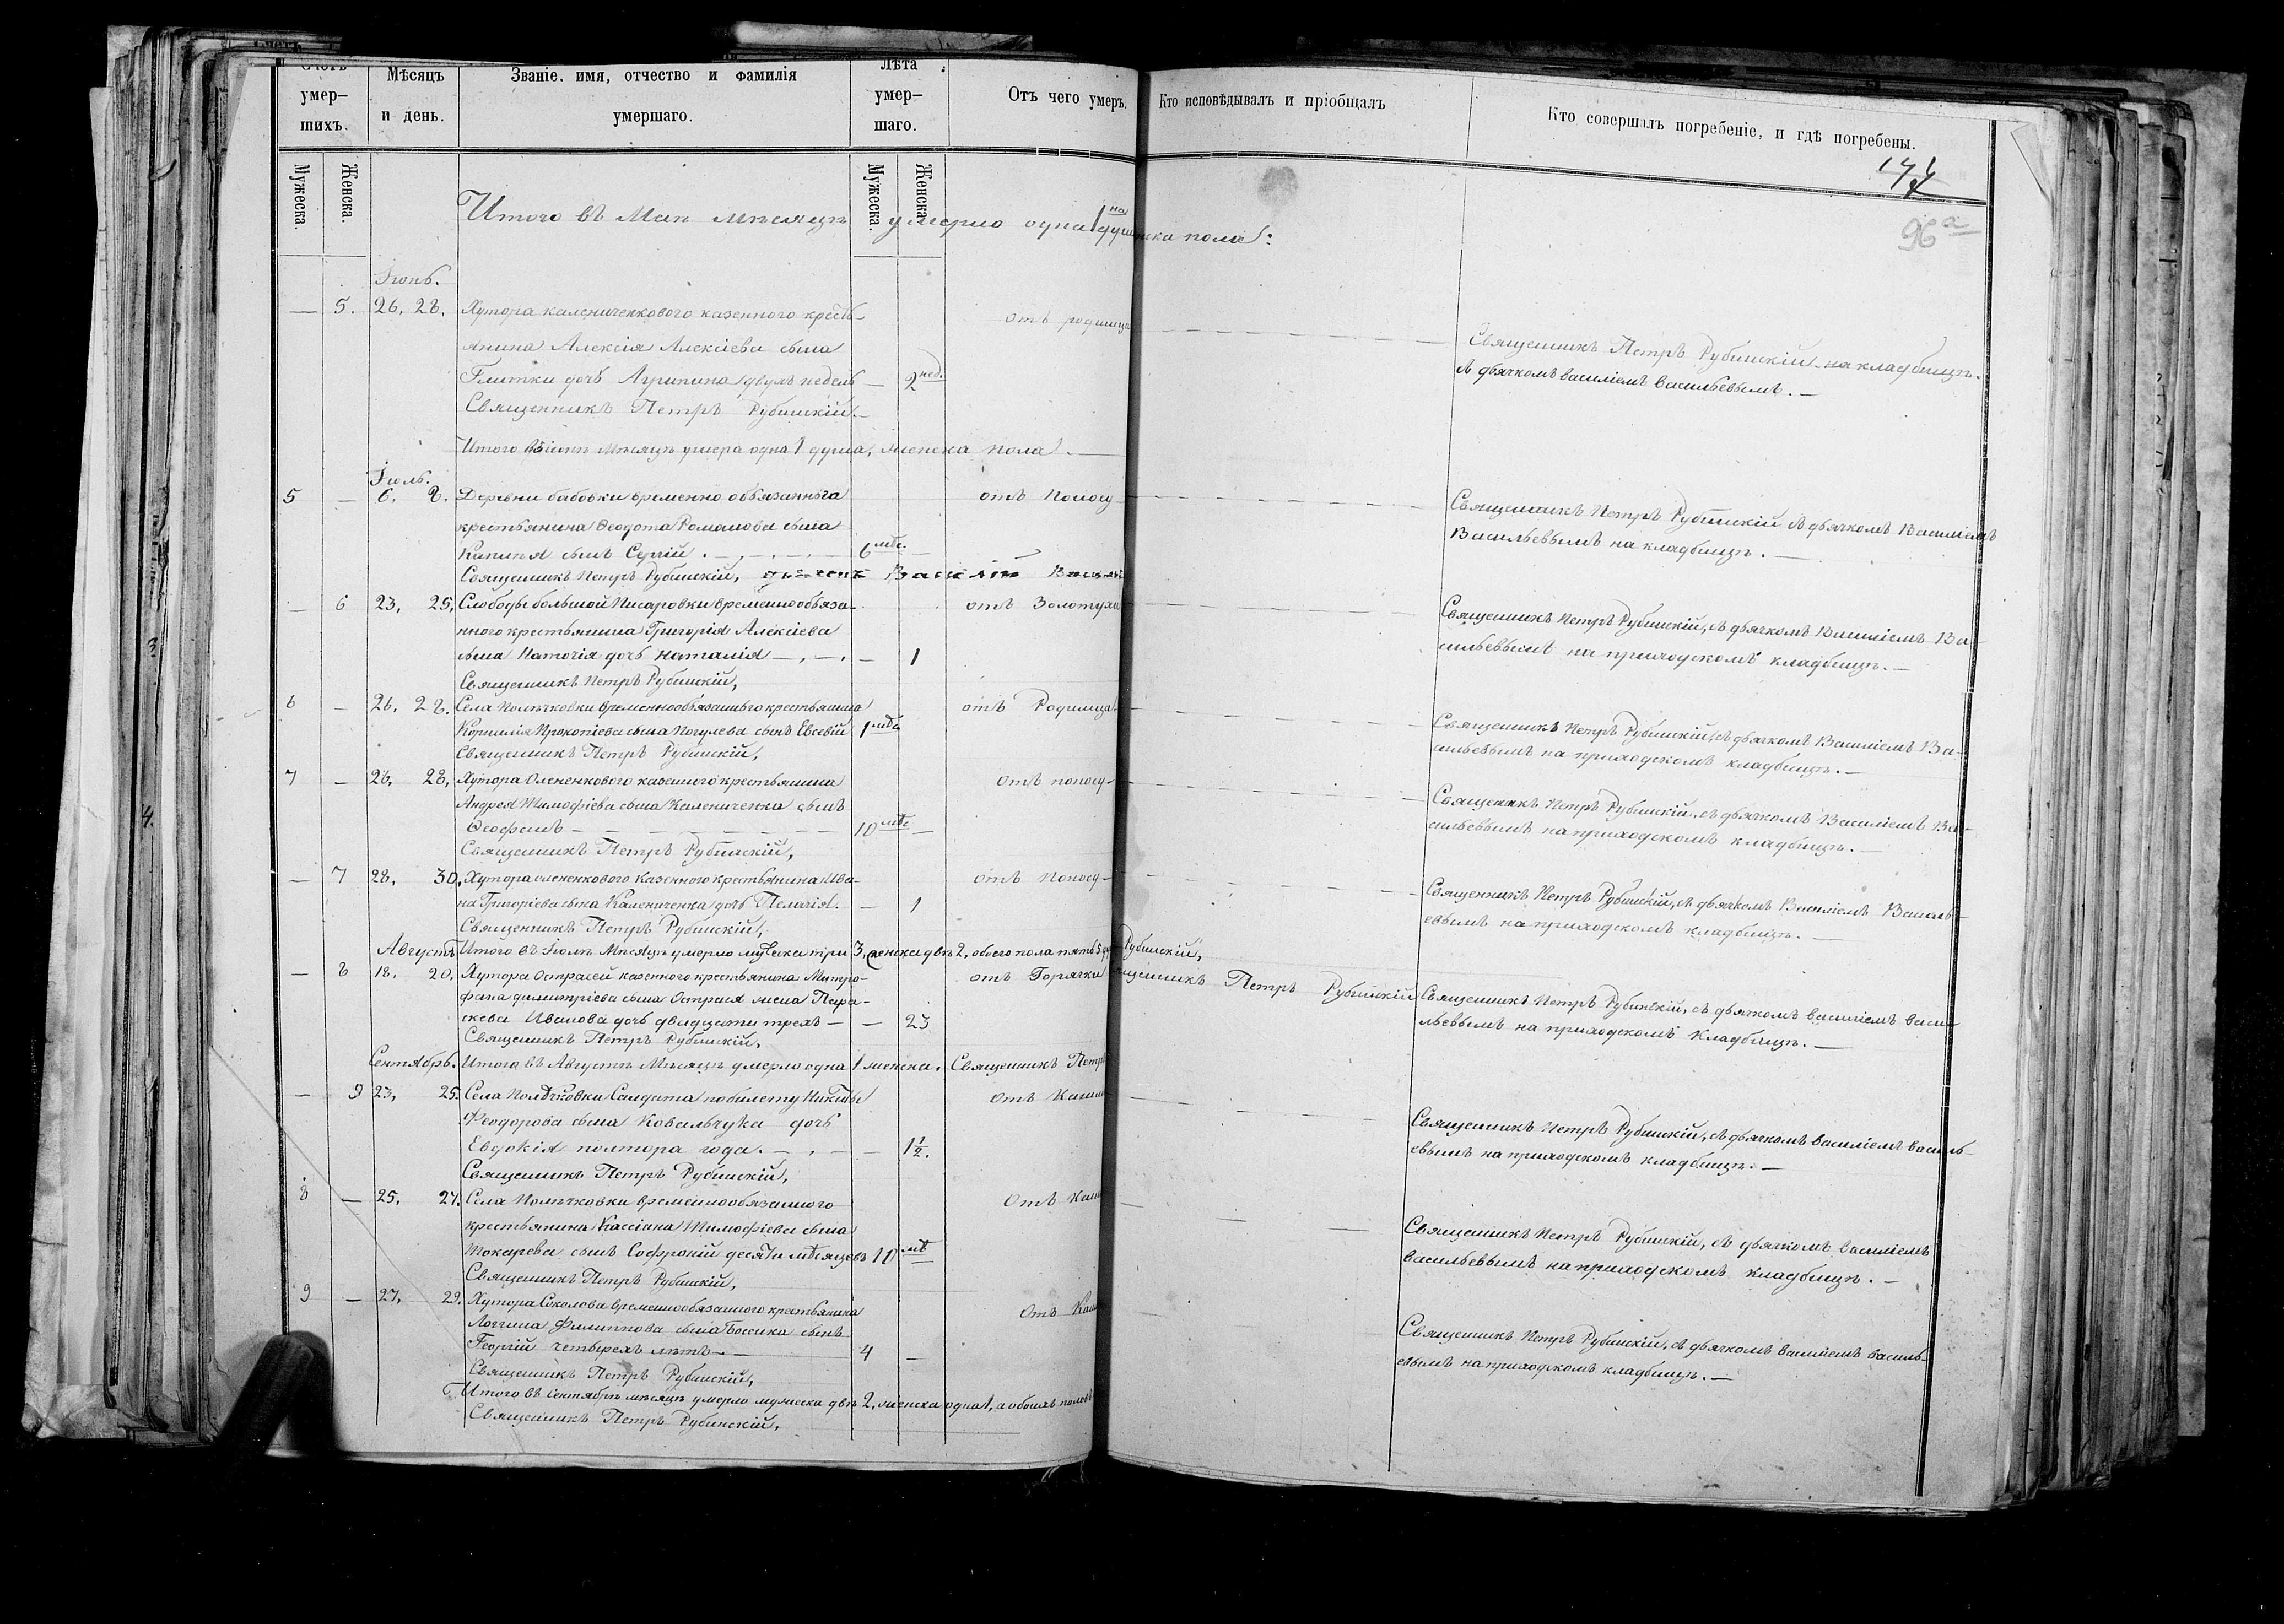 Счетъ умер– шихъ.
Мѣсяцъ и день.
Званіе. имя, отчество и фамилія умершаго.
Лѣта умер– шаго.
Отъ чего умеръ.
Кто исповѣдывалъ и пріобщалъ
Кто совершалъ погребеніе, и гдѣ погребены.
Мужеска.
Женска.
Мужеска.
Женска.
96 а
Итого въ Маѣ мѣсяцѣ умерло одна 1 пола
Іюнь.
— 5. 26. 28. Хутора калениченкового казенного кресть-
янина Алексія Алексіева сына
дочь Агрипина двухъ недель — 2 нед.
отъ родимца
Священникъ Петръ Рубинскій.
Священникъ Петръ Рубинскій на кладбищѣ.
съ дьячкомъ василіемъ васильевымъ. —
Итого въ іюнѣ мѣсяцѣ умера одна 1 душа, женска пола. —
Іюль.
5 — 6. 8. Деревни бабовки временно обязаннаго
крестьянина Ѳеодота Романова сына
сынъ Сергій. — 6 мѣс. —
отъ поносу
Священникъ Петръ Рубинскій, дьячекъ Василій
Священникъ Петръ Рубинскій съ дьячкомъ Василіемъ
Васильевымъ на кладбищѣ. —
— 6 23, 25, Слободы большой Писаровки временнообяза-
нного крестьянина Григорія Алексіева
сына дочь Наталія — 1
отъ Золотухи
Священникъ Петръ Рубинскій,
Священникъ Петръ Рубинскій, съ дьячкомъ Василіемъ Ва-
сильевымъ на приходскомъ кладбищѣ. —
6 — 26. 28. Села Полѣчковки временнообязаннаго крестьянина
Корнилія Прокопіева сына сынъ Евсевій 1 мѣс
отъ Родимца
Священникъ Петръ Рубинскій,
Священникъ Петръ Рубинскій, съ дьячкомъ Василіемъ Ва-
сильевымъ на приходскомъ кладбищѣ. —
7 — 26, 28, Хутора Олененкового казенного крестьянина
Андрея Тимофіева сына Калениченка сынъ
Ѳеофанъ — 10 мѣс —
отъ поносу
Священникъ Петръ Рубинскій,
Священникъ Петръ Рубинскій, съ дьячкомъ Василіемъ Ва-
сильевымъ на приходскомъ кладбищѣ. —
— 7 28, 30, Хутора олененкового казенного крестьянина Ива-
на Григоріева сына Калениченка дочь Пелагія. — 1
отъ поносу
Священникъ Петръ Рубинскій,
Священникъ Петръ Рубинскій, съ дьячкомъ Василіемъ Василь-
евымъ на приходскомъ кладбищѣ. —
Итого въ Іюлѣ Мѣсяцѣ умерло мужеска три 3, женска двѣ 2, обоего пола пять 5 Рубинскій,
Августъ
— 8 18. 20. Хутора Острасей казенного крестьянина Митро-
фана димитріева сына Острася жена Пара-
скева Иванова дочь двадцати трехъ — — 23
отъ Горячки
Священникъ Петръ Рубинскій,
Священникъ Петръ Рубинскій, съ дьячкомъ василіемъ васи-
льевымъ на приходскомъ кладбищѣ. —
Итого въ Августѣ Мѣсяцѣ умерло одна 1 женска. Священникъ Петръ Рубинскій
Сентябрь.
— 9 23, 25. Села Полѣчковки Салдата по билету Никиты
Феодорова сына Ковальчука дочь
Евдокія полтора года. — 1½.
отъ
Священникъ Петръ Рубинскій,
Священникъ Петръ Рубинскій, съ дьячкомъ василіемъ василь-
евымъ на приходскомъ кладбищѣ. —
8 — 25, 27. Села Полѣчковки временнообязанного
крестьянина Кассіана Тимофіева сына
Токарева сынъ Софроній десяти мѣсяцевъ 10 мѣ
отъ
Священникъ Петръ Рубинскій,
Священникъ Петръ Рубинскій, съ дьячкомъ василіемъ
васильевымъ на приходскомъ кладбищѣ. —
9 — 27, 29. Хутора Соколова временнообязанного крестьянина
Логгина Филиппова сына сынъ
Георгій четырехъ лѣтъ — 4 —
отъ
Священникъ Петръ Рубинскій,
Священникъ Петръ Рубинскій, съ дьячкомъ василіемъ василь-
евымъ на приходскомъ кладбищѣ. —
Итого въ сентябрѣ мѣсяцѣ умерло мужеска двѣ 2, женска одна 1, а обоихъ половъ
Священникъ Петръ Рубинскій,